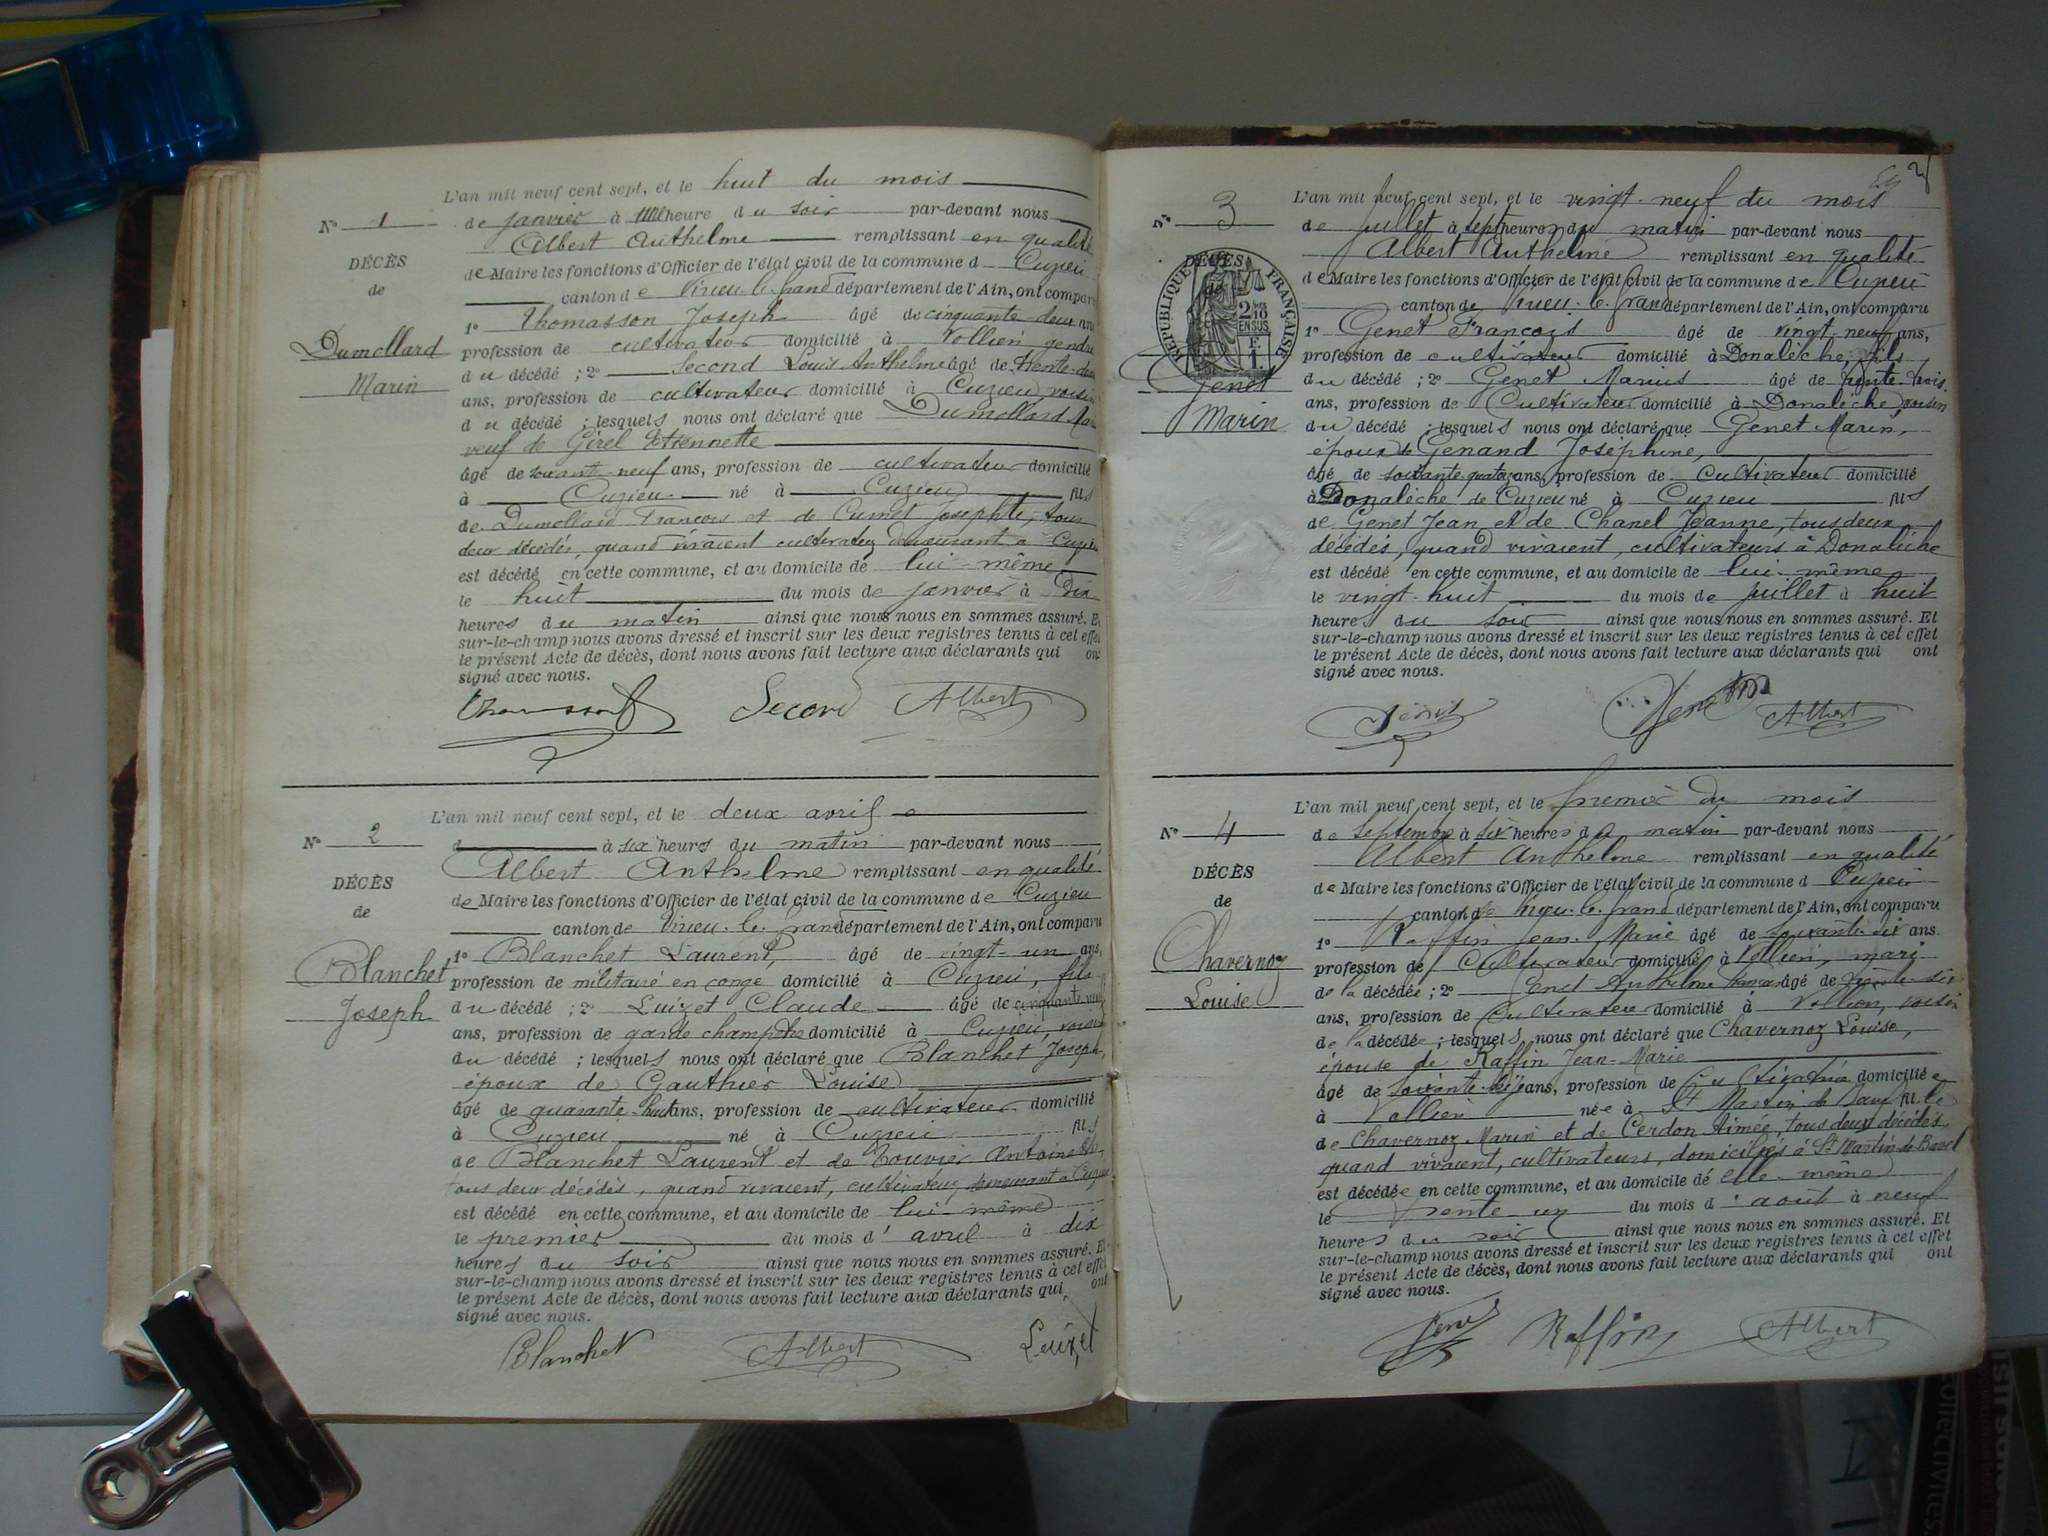 L'an mil neuf cent sept, et le huit du mois
N° 1 de janvier à heure du soir par-devant nous
Albert Anthelme remplissant en qualité
DÉCÈS
de Maire les fonctions d'Officier de l'état civil de la commune d Cuzieu
de
canton de Virieu-le-grand département de l'Ain, ont comparu
1° Thomasson Joseph âgé de cinquante-deux ans
Dumollard
profession de cultivateur domicilié à Vollien, gendre
Marin
du décédé ; 2° Second Louis Anthelme âgé de trente-deux
ans, profession de cultivateur domicilié à Cuzieu, voisin
du décédé ; lesquels nous ont déclaré que Dumollard
veuf de Girel Etiennette
âgé de neuf ans, profession de cultivateur domicilié
à Cuzieu né à Cuzieu fils
de Dumollard François et de Cumet Josephte, tous
deux décédés, quand vivaient cultivateurs demeurant à Cuzieu
est décédé en cette commune, et au domicile de lui-même
le huit du mois de janvier à Dix
heures du matin ainsi que nous nous en sommes assuré. Et
sur-le-champ nous avons dressé et inscrit sur les deux registres tenus à cet effet
le présent Acte de décès, dont nous avons fait lecture aux déclarants qui ont
signé avec nous.
Second Albert
L'an mil neuf cent sept, et le deux avril
N° 2 d à six heures du matin par-devant nous
Albert Anthelme remplissant en qualité
DÉCÈS
de Maire les fonctions d'Officier de l'état civil de la commune de Cuzieu
de
canton de Virieu-le-grand département de l'Ain, ont comparu
Blanchet
1° Blanchet Laurent, âgé de vingt-un ans,
profession de militaire en congé domicilié à Cuzieu, fils
Joseph
du décédé ; 2° Luizet Claude âgé de
ans, profession de garde champêtre domicilié à Cuzieu, voisin
du décédé ; lesquels nous ont déclaré que Blanchet Joseph,
époux de Gauthier Louise
âgé de quarante-huit ans, profession de cultivateur domicilié
à Cuzieu né à Cuzieu fils
de Blanchet Laurent et de Bouvier Antoinette
tous deux décédés, quand vivaient, cultivateurs, demeurant à Cuzieu
est décédé en cette commune, et au domicile de lui-même
le premier du mois d'avril à dix
heures du soir ainsi que nous nous en sommes assuré. Et
sur-le-champ nous avons dressé et inscrit sur les deux registres tenus à cet effet
le présent Acte de décès, dont nous avons fait lecture aux déclarants qui ont
signé avec nous.
Blanchet Albert Luizet
L'an mil neuf cent sept, et le vingt-neuf du mois
N° 3 de juillet à sept heures du matin par-devant nous
Albert Anthelme remplissant en qualité
DÉCÈS
de
RÉPUBLIQUE FRANÇAISE
2/10 EN SUS
F. 1
de Maire les fonctions d'Officier de l'état civil de la commune de Cuzieu
canton de Virieu-le-grand département de l'Ain, ont comparu
1° Genet François âgé de vingt-neuf ans,
profession de cultivateur domicilié à Donalèche, fils
Genet
du décédé ; 2° Genet Marius âgé de trente-trois
ans, profession de Cultivateur domicilié à Donalèche, voisin
Marin
du décédé ; lesquels nous ont déclaré que Genet Marin,
époux de Genand Joséphine,
âgé de soixante-quatorze ans, profession de Cultivateur domicilié
à Donalèche de Cuzieu né à Cuzieu fils
de Genet Jean et de Chanel Jeanne, tous deux
décédés, quand vivaient, cultivateurs à Donalèche
est décédé en cette commune, et au domicile de lui-même
le vingt-huit du mois de juillet à huit
heures du soir ainsi que nous nous en sommes assuré. Et
sur-le-champ nous avons dressé et inscrit sur les deux registres tenus à cet effet
le présent Acte de décès, dont nous avons fait lecture aux déclarants qui ont
signé avec nous.
Albert
L'an mil neuf cent sept, et le premier du mois
N° 4 de septembre à six heures du matin par-devant nous
Albert Anthelme remplissant en qualité
DÉCÈS
de Maire les fonctions d'Officier de l'état civil de la commune d Cuzieu
de
canton de Virieu-le-grand département de l'Ain, ont comparu
1° Raffin Jean-Marie âgé de soixante-dix ans
Chavernoz
profession de Cultivateur domicilié à Vollien, mari
Louise
de la décédée ; 2° Genet Anthelme âgé de trente-six
ans, profession de Cultivateur domicilié à Vollien, voisin
de la décédée ; lesquels nous ont déclaré que Chavernoz Louise,
épouse de Raffin Jean-Marie
âgé de ans, profession de Cultivatrice domiciliée
à Vollien née à St Martin de Bavel fille
de Chavernoz Marin et de Cerdon Aimée, tous deux décédés,
quand vivaient, cultivateurs, domiciliés à St Martin-de-Bavel
est décédée en cette commune, et au domicile de elle-même
le trente-un du mois d'août à neuf
heures du soir ainsi que nous nous en sommes assuré. Et
sur-le-champ nous avons dressé et inscrit sur les deux registres tenus à cet effet
le présent Acte de décès, dont nous avons fait lecture aux déclarants qui ont
signé avec nous.
Genet Raffin Albert